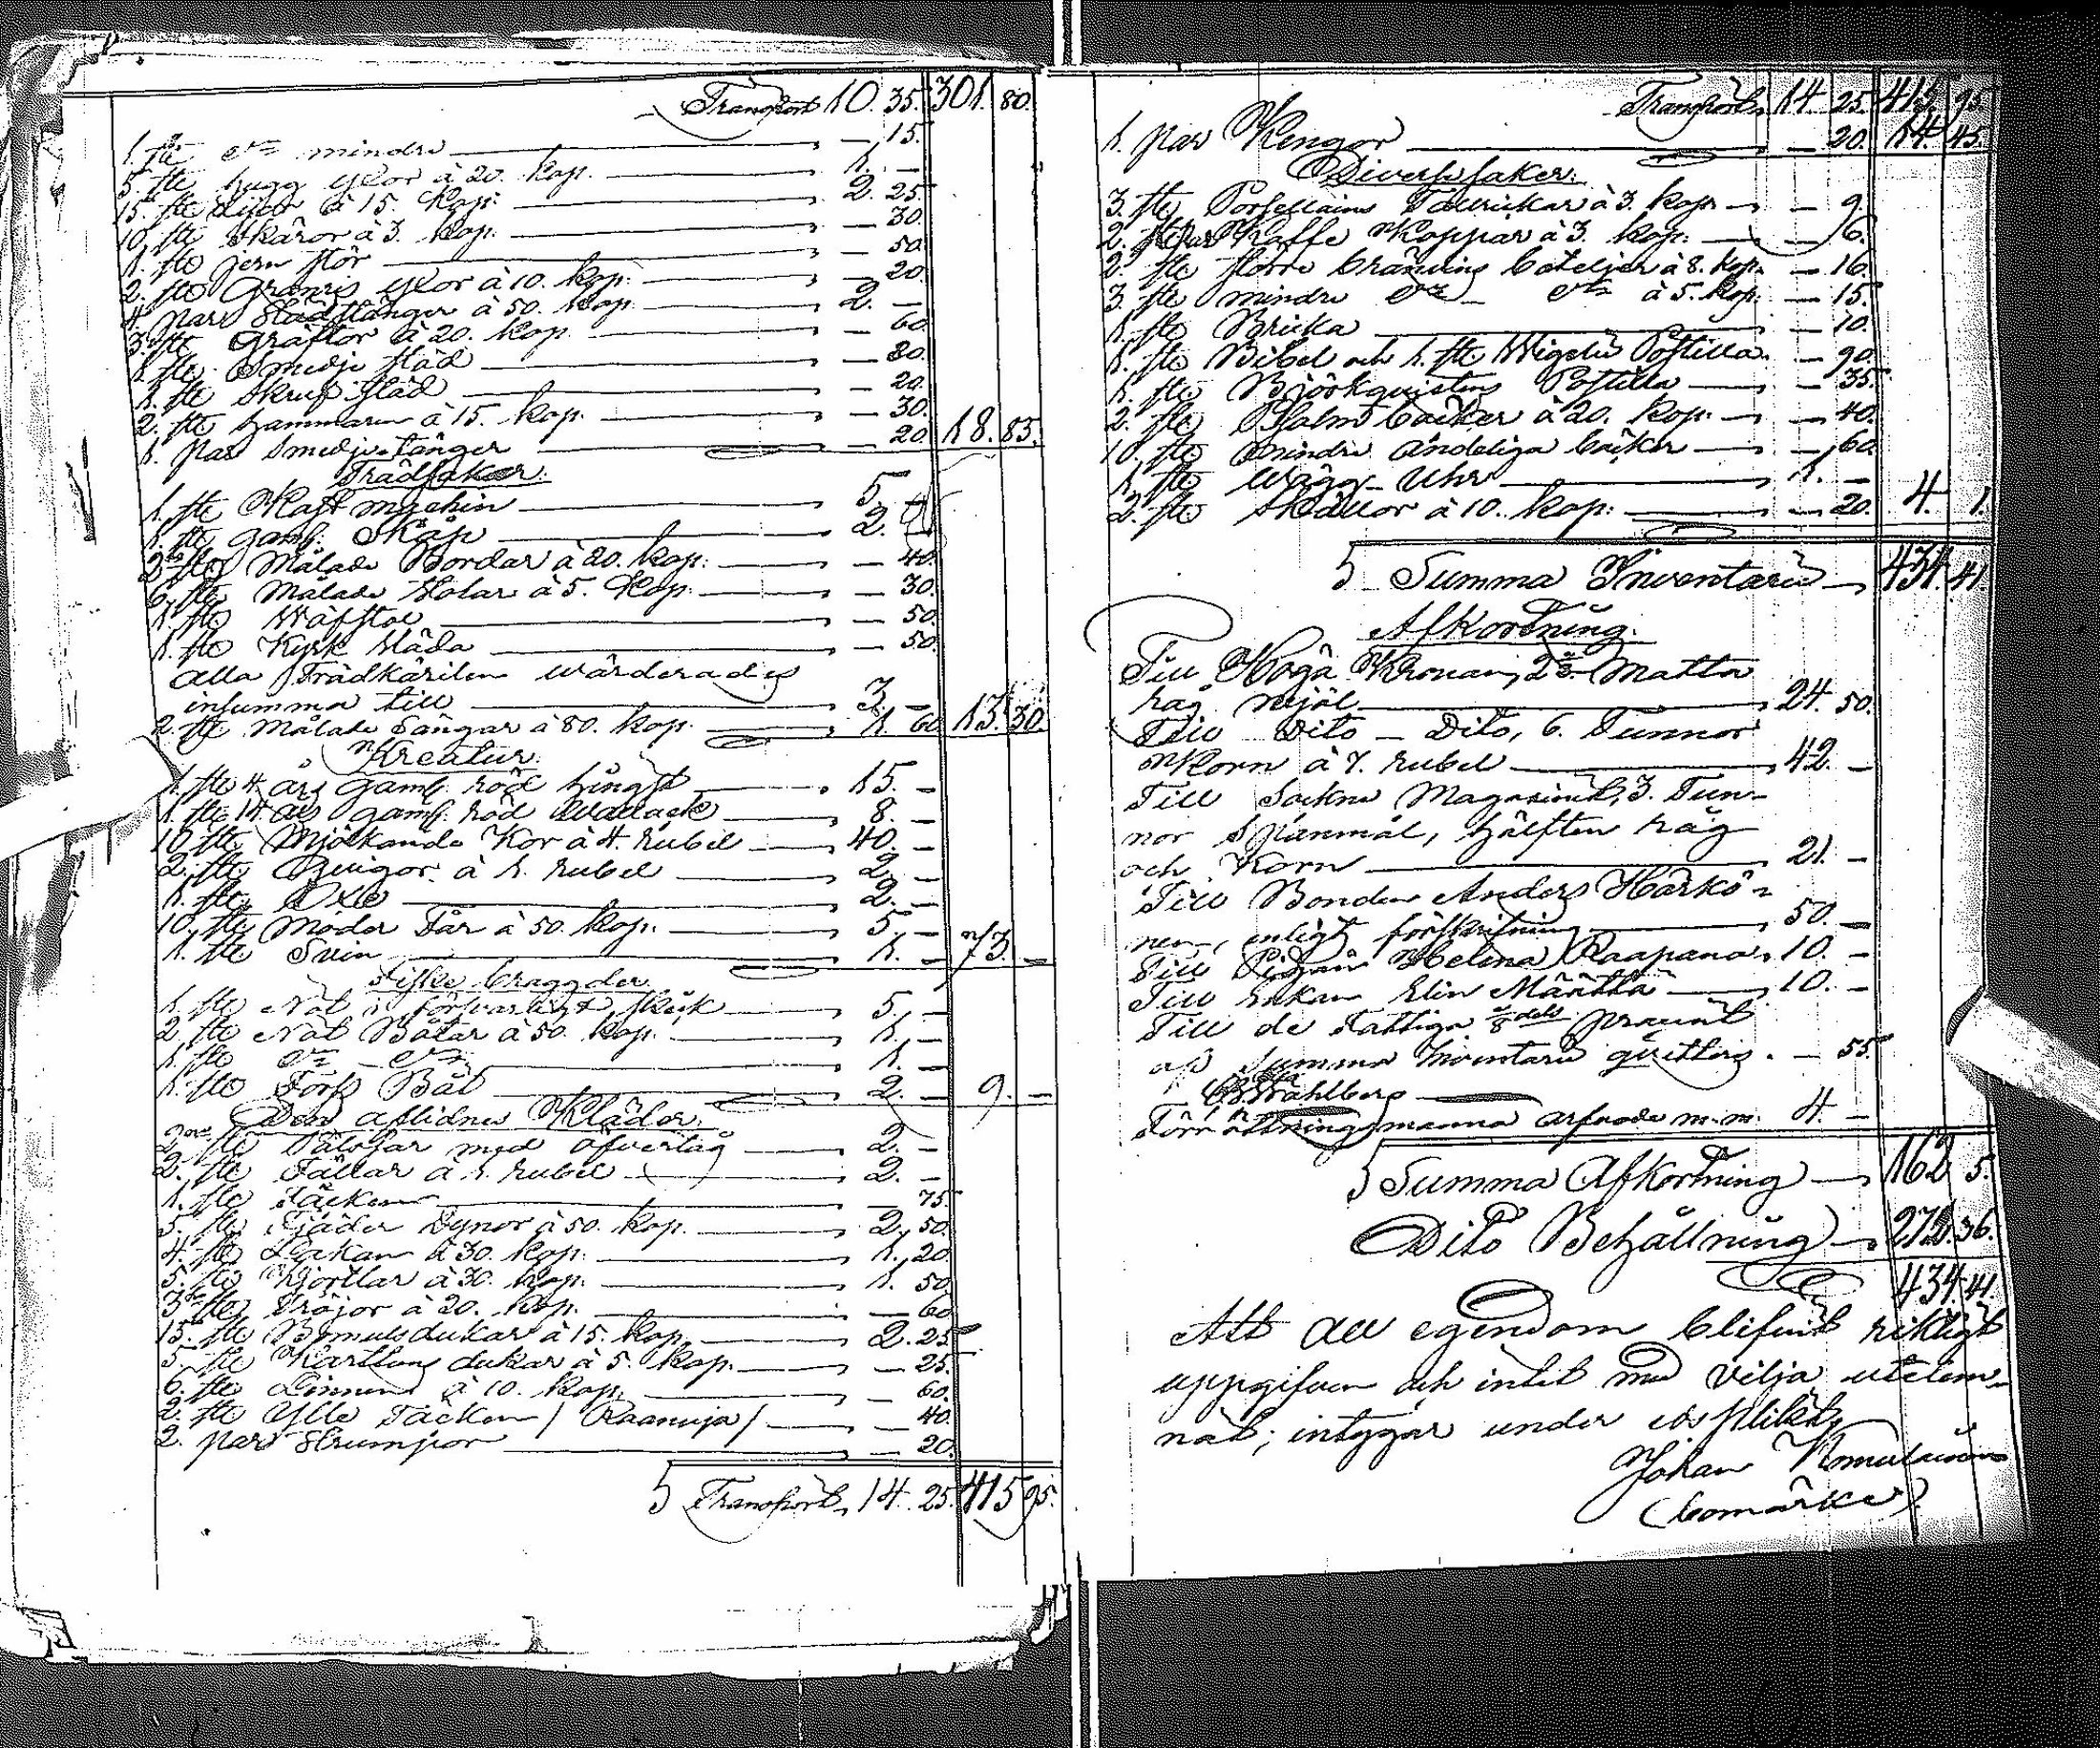 Transport 10. 35. 301. 80.
1. ste d:o mindre — 15.
5. ste hugg yxor à 20. kop. 1. —
15. ste Liar à 15. kop. 2. 25.
10. ste Skäror à 3. kop. — 30.
1. ste jern stör — 50.
2. ste yxor à 10. kop. — 20.
4. par Städtänger à 50. kop. 2. —
3. ste Gräftor à 20. kop. — 60.
1. ste Smedje städ — 80.
1. ste Skruf städ — 20.
2. ste hammaren à 15. kop. — 30.
1. par Smedje tänger — 20. 18. 85.
Trädsaker.
1. ste Kast machin 5. —
1. ste gam: Skåp 2. —
2. ste Målade Bordar à 20. kop. — 40.
6. ste Målade Stolar à 5. kop. — 30.
1. ste Wäfstol — 50.
1. ste Kyrk släda — 50.
Alla Trädkärilen wärderades
insumma till 3. —
2. ste Målade Sängar à 80. kop. 1. 60. 13. 30.
Kreatur.
1. ste 4. års gaml. röd hingst 15. —
1. ste 14. års gaml. röd Wallack 8. —
10. ste Mjölkande Kor à 4. rubel 40. —
2. ste Quigor à 1. rubel 2. —
1. ste Oxe 2. —
10. ste Moder Får à 50. kop. 5. —
1. ste Svin 1. — 73. —
Fiske braggder
1. ste Not i förvarligt skick 5. —
2. ste Not Båtar à 50. kop. 1. —
1. ste d:o d:o 1. —
1. ste Fors Båt 2. — 9. —
Den aflidnes Kläder.
2. ste Pälsar med öfvertåg 2. —
2. ste Fällar à 1. rubel 2. —
1. ste Täcken — 75.
5. ste Fjäder Dynor à 50. kop. 2. 50.
4. ste Lakan à 30. kop. 1. 20.
5. ste Kjortlar à 30. kop. 1. 50.
3. ste Tröjor à 20. kop. — 60.
15. ste Bomulsdukar à 15. kop. 2. 25.
5. ste Kartuns dukar à 5. kop. — 25.
6. ste Linnen à 10. kop. — 60.
2. ste Ylle Täcken / Raanuja / — 40.
2. par Strumpor — 20.
Transport, 14. 25. 415 95.
Transport, 14. 25. 415. 95.
1. par Kengor — 20. 14. 45.
Diverssaker.
3. ste Porsellains Tallrickar à 3. kop. — 9.
2. par Kaffe Koppar à 3. kop. — 6.
2. ste större bränvins boteljer à 8. kop. — 16.
3. ste mindre d:o — d:o à 5. kop. — 15.
1. ste Bricka — 10.
1. ste Bibel och 1. ste Wigelii Postilla — 90.
1. ste Björkquistens Postilla — 35.
2. ste Psalm böcker à 20. kop. — 40.
10. ste mindre andeliga böcker — 60.
1. ste Wägg Uhr 1. —
2. ste Skällor à 10. kop. — 20. 4. 1.
Summa Inventarii 434. 41.
Afkortning.
Till Höga Kronan, Matta
råg mjöl 24. 50.
Till Dito — Dito, 6. Tunnor
Korn à 7. rubel 42. —
Till Sockne Magasinet, 3. Tun-
nor Spanmål, hälften råg
och Korn 21. —
Till Bonden Anders Härkö-
nen, enligt förskrifning 50. —
Till Pigan Helena Raapana, 10. —
Till Enkan Elin Määttä 10. —
Till de Fattiga 1/8 dels procent
af Summa Inventarii qvitteras. — 55.
Wahlberg
Förrättningsmanna arfvode m. m. 4. —
Summa Afkortning 162 5.
Dito Behållning 272. 36.
434. 41.
Att all egendom blifvit riktigt
uppgifven och intet med vilja utelem-
nat; intygar under edsplikt,
Johan
(bomärke)